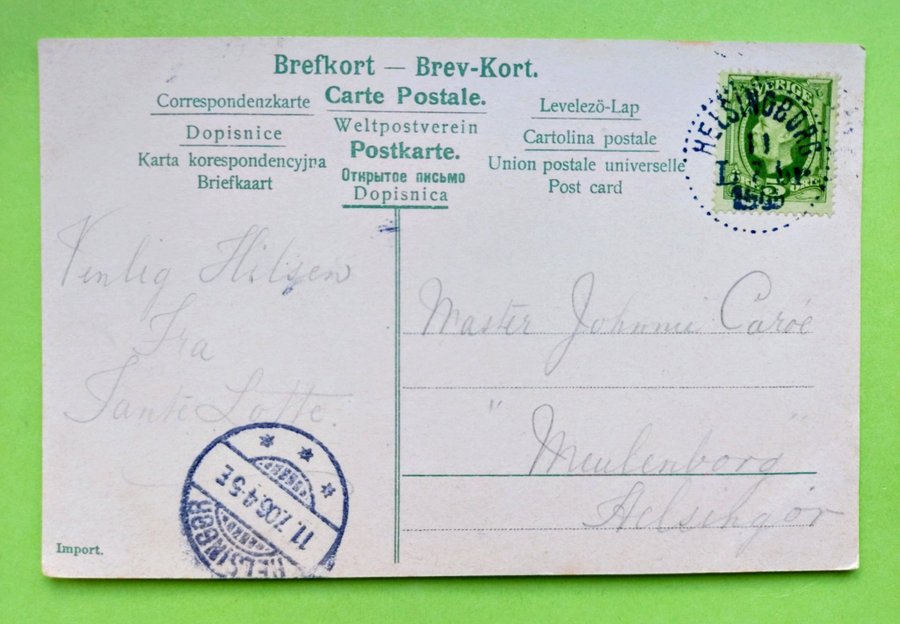 Brefkort — Brev-Kort.
Correspondenzkarte Carte Postale. Levelezö-Lap
Dopisnice Weltpostverein Cartolina postale
Karta korespondencyjna Postkarte. Union postale universelle
Briefkaart Открытое письмо Post card
Dopisnica
SVERIGE
HELSINGBORG
11
Venlig Hilsen
Fra
Tante Lotte.
Master Johnni Carøe
"Meulenborg"
Helsingør
11.7.06.4-5E
HELSINGØR
Import.